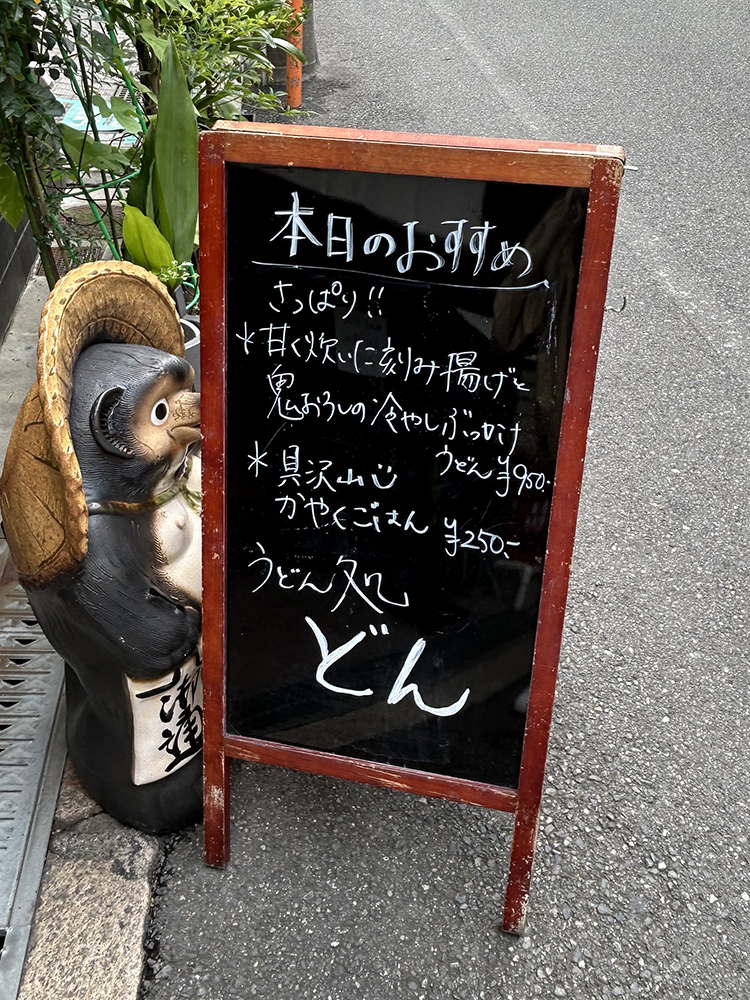 本日のおすすめ
さっぱり!!
*甘く炊いた刻み揚げと
鬼おろしの冷やしぶっかけ
うどん ¥950.-
*具沢山
かやくごはん ¥250.-
うどん処
どん
通